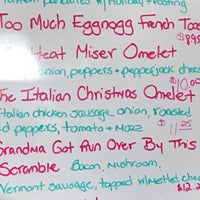 pancakes w/ Holiday frosting
Too Much Eggnogg French Toas
$895
Heat Miser Omelet
onion, peppers + pepperjack chees
$10.00
The Italian Christmas Omelet
Italian chicken sausage, onion, roasted
d peppers, tomato + Mozz
$11.25
Grandma Got Run Over By This
Scramble Bacon, Mushroom,
Vermont sausage, topped w/melted chees
$12.2